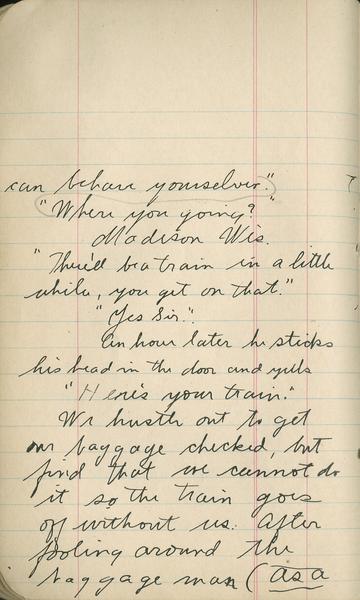 can behave yourselves."
"Where you going?"
Madison Wis.
"There'd be a train in a little
while, you get on that."
"Yes Sir."
An hour later he sticks
his head in the door and yells
"Here's your train."
We hustle out to get
our baggage checked, but
find that we cannot do
it so the train goes
off without us. After
fooling around the
baggage man (as a